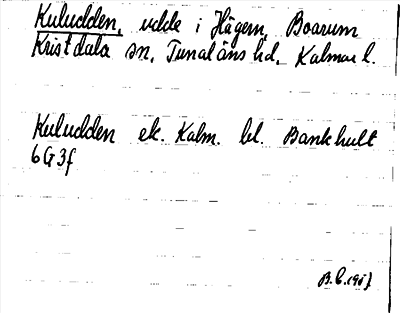 Kuludden, udde i Hägern, Boarum
Kristdala sn, Tunaläns hd, Kalmar l.
Kuludden ek. Kalm. bl. Bankhult
6G3f